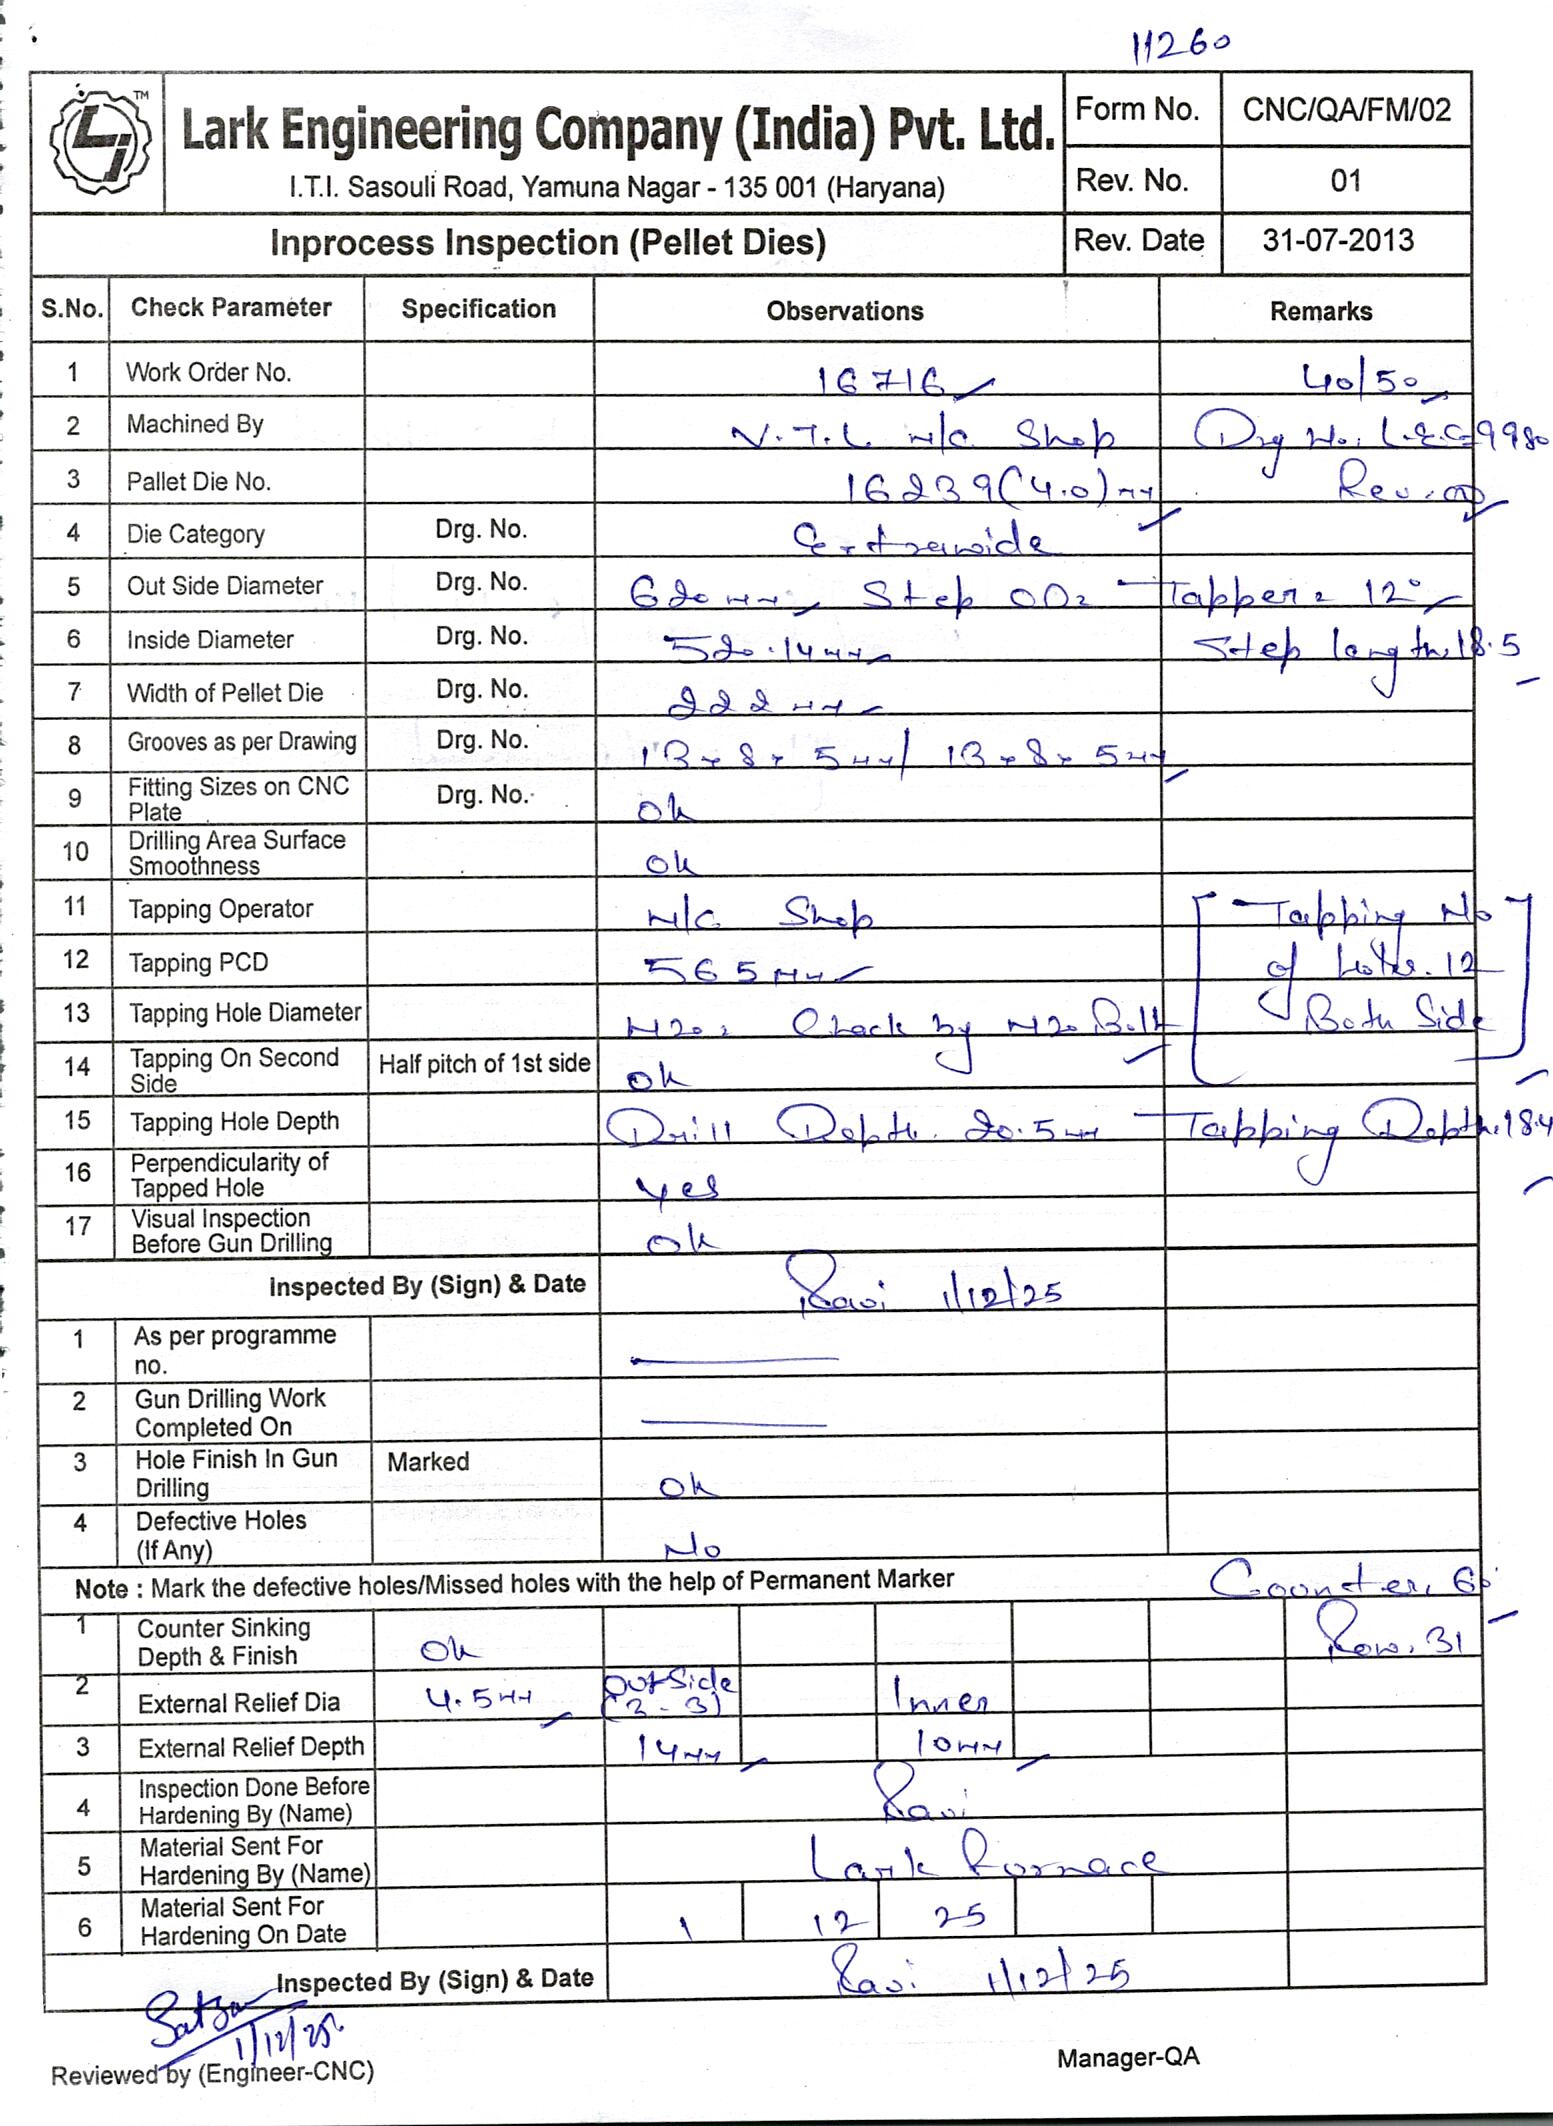 11260
TM
Lark Engineering Company (India) Pvt. Ltd.
I.T.I. Sasouli Road, Yamuna Nagar - 135 001 (Haryana)
Form No. CNC/QA/FM/02
Rev. No. 01
Inprocess Inspection (Pellet Dies) Rev. Date 31-07-2013
S.No. Check Parameter Specification Observations Remarks
1 Work Order No. 16716 40/50
2 Machined By V.T.L M/C Shop Drg No. L.E.C-9980
3 Pallet Die No. 16239 (4.0)mm Rev.
4 Die Category Drg. No. Extrawide
5 Out Side Diameter Drg. No. 620mm Step OD= Tapper = 12°
6 Inside Diameter Drg. No. 520.14mm Step length 18.5
7 Width of Pellet Die Drg. No. 222mm
8 Grooves as per Drawing Drg. No. 13x8x5mm/ 13x8x5mm
9 Fitting Sizes on CNC Plate Drg. No. Ok
10 Drilling Area Surface Smoothness Ok
11 Tapping Operator M/C Shop Tapping No
12 Tapping PCD 565mm of holes. 12
13 Tapping Hole Diameter M20 = Check by M20 Bolt Both Side
14 Tapping On Second Side Half pitch of 1st side Ok
15 Tapping Hole Depth Drill Depth. 20.5mm Tapping Depth. 18.4
16 Perpendicularity of Tapped Hole yes
17 Visual Inspection Before Gun Drilling Ok
Inspected By (Sign) & Date Ravi 1/12/25
1 As per programme no.
2 Gun Drilling Work Completed On
3 Hole Finish In Gun Drilling Marked Ok
4 Defective Holes (If Any) No
Note : Mark the defective holes/Missed holes with the help of Permanent Marker Counter. 60°
1 Counter Sinking Depth & Finish Ok Row. 31
2 External Relief Dia 4.5mm OutSide (3-3) Inner
3 External Relief Depth 14mm 10mm
4 Inspection Done Before Hardening By (Name) Ravi
5 Material Sent For Hardening By (Name) Lark Furnace
6 Material Sent For Hardening On Date 1 12 25
Inspected By (Sign) & Date Ravi 1/12/25
1/12/25
Reviewed by (Engineer-CNC) Manager-QA